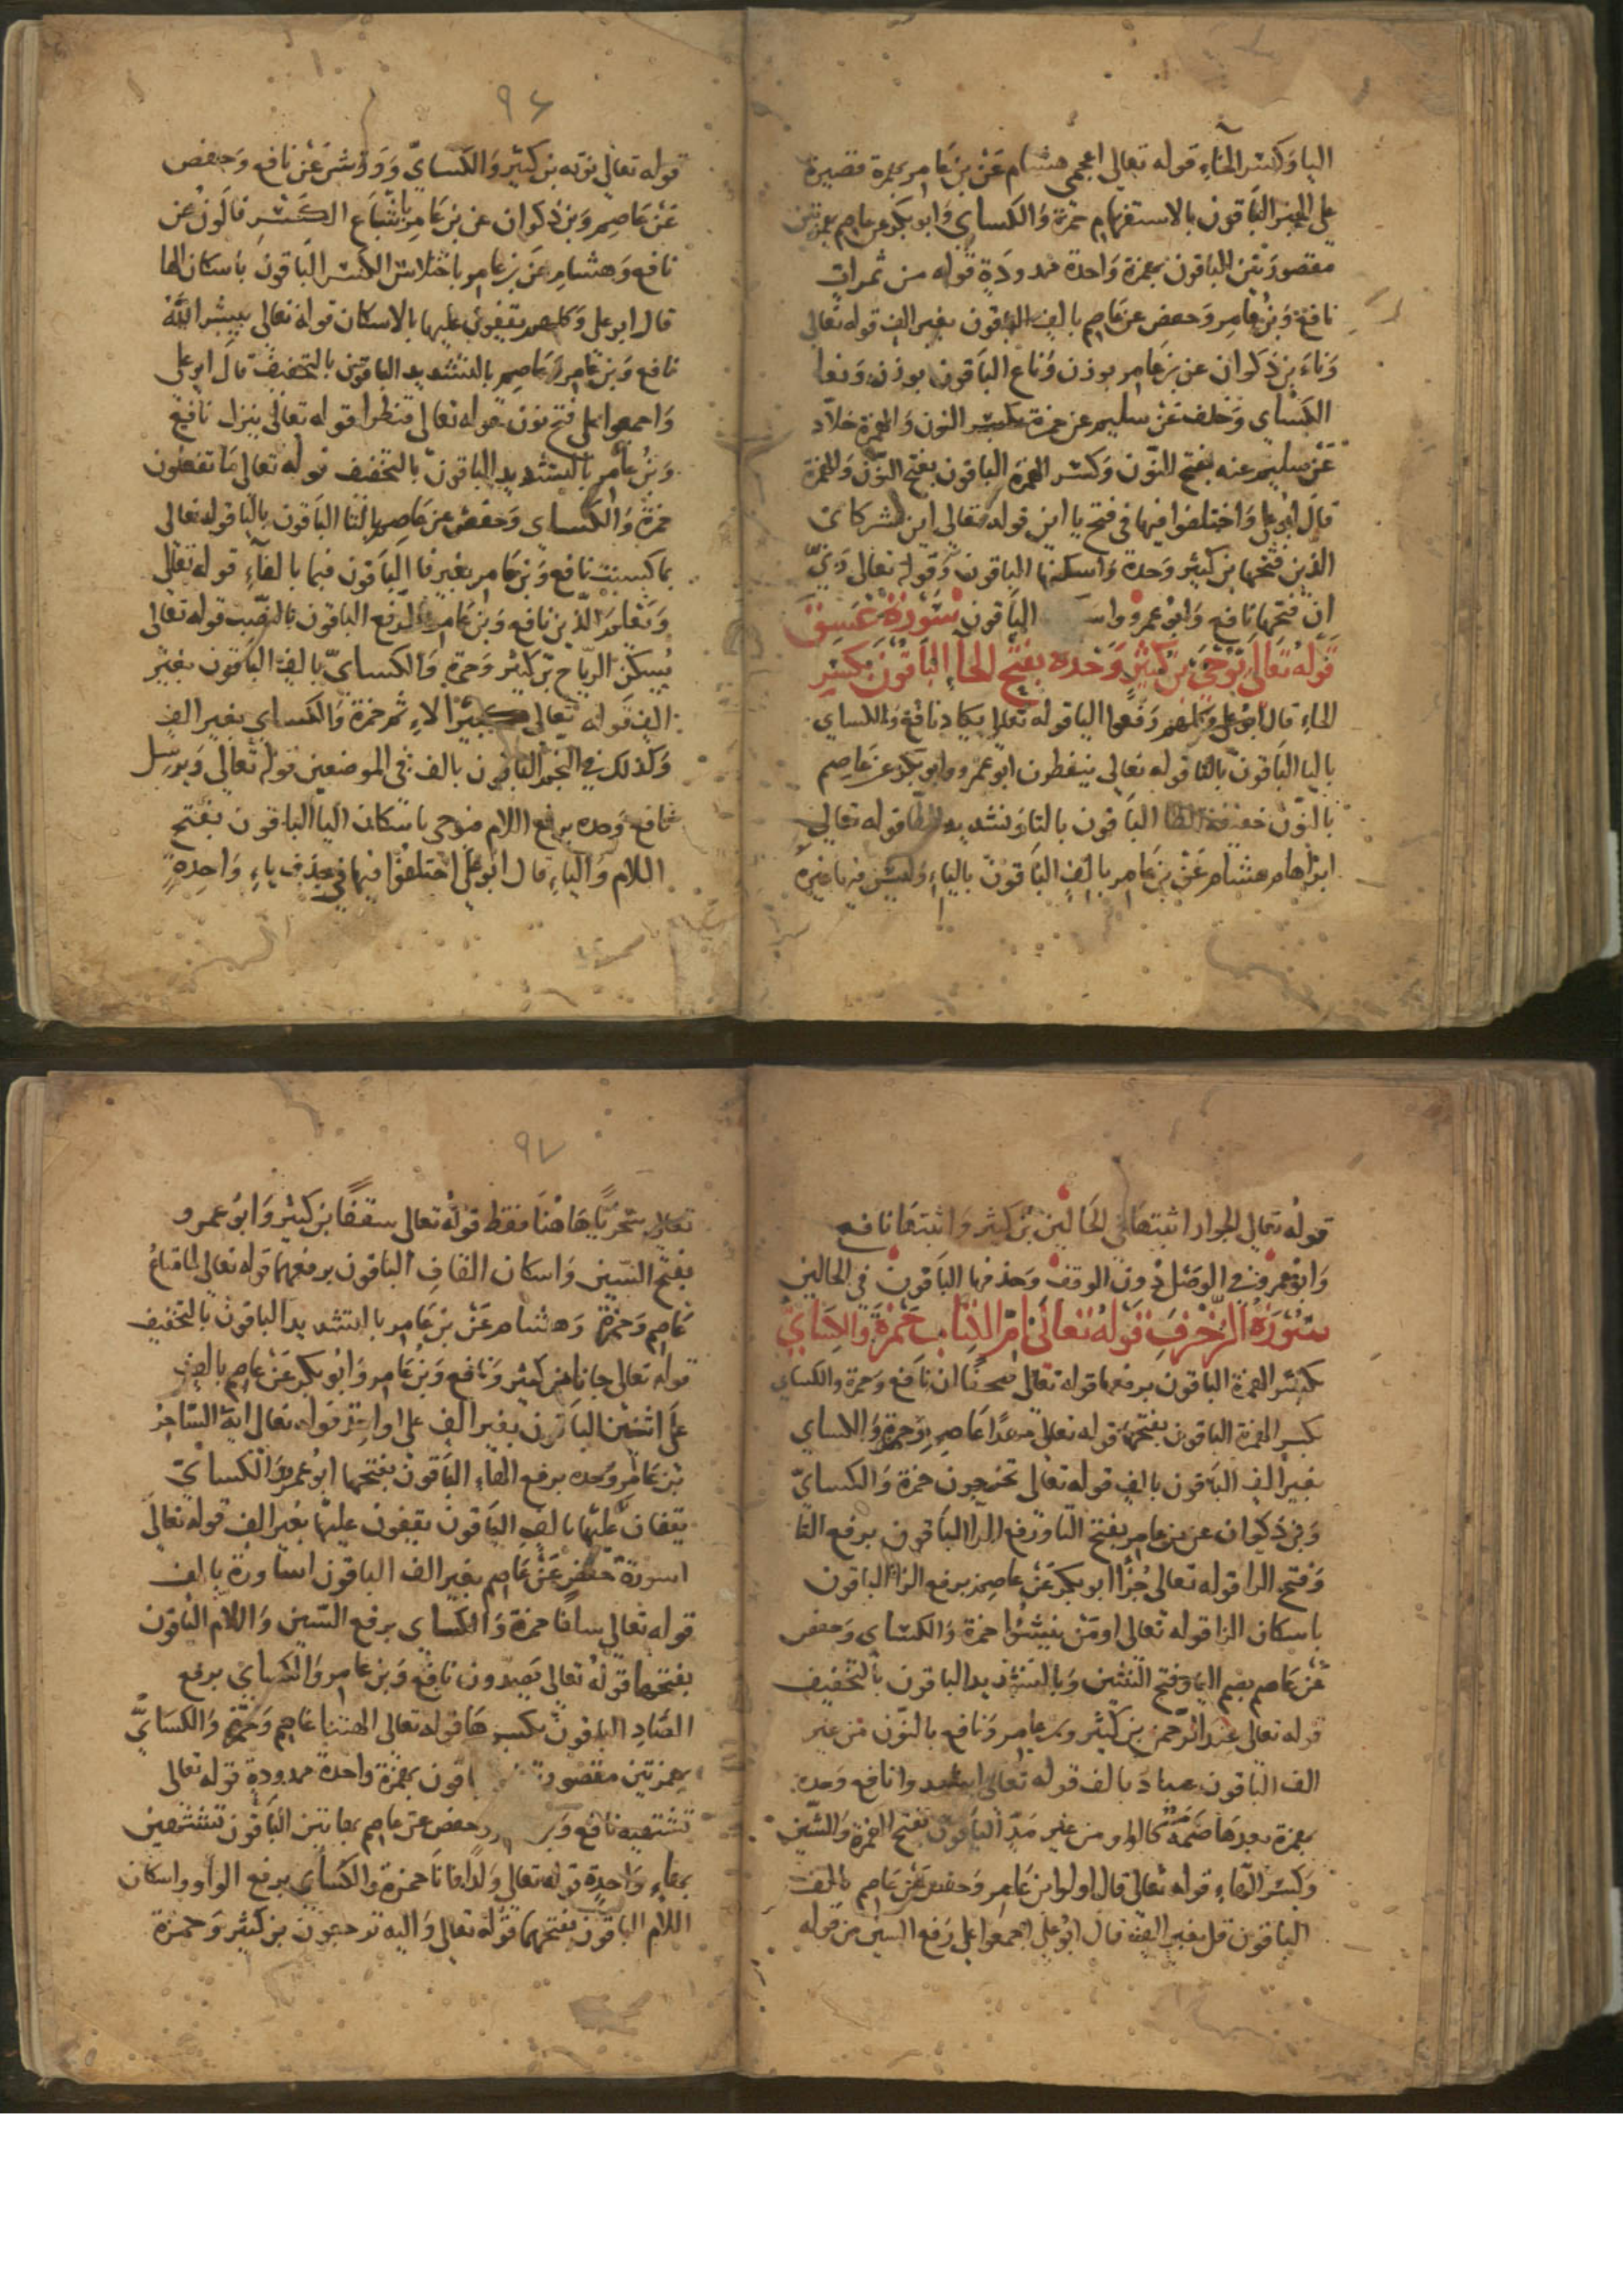 اليا وكسر الحاء قوله تعالى اعجمي هشام عن بن عامر بهمزة قصيرة
على الخبر الباقون بالاستفهام حمزة والكساي وابو بكر عن عاصم بهمزتين
مقصورتين الباقون بهمزة واحدة ممدودة قوله من ثمرات
نافع وبن عامر وحفص عن عاصم بالف الباقون بغير الف قوله تعالى
وناء بن ذكوان عن بن عامر بوزن وناع الباقون بوزن ونعا
الكساي وخلف عن سليم عن حمزة بكسر النون والهمزة خلاد
عن سليم عنه بفتح النون وكسر الهمزة الباقون بفتح النون والهمزة
قال ابو علي واختلفوا فيها في فتح يا اين قوله تعالى اين شركاي
الذين فتحها بن كثير وحده واسكنها الباقون وقوله تعالى ربي
ان فتحها نافع وابو عمرو واسـ الباقون سورة عسق
قوله تعالى يوحى بن كثير وحده بفتح الحا الباقون بكسر
الحاء قال ابو علي وكلهم رفعوا اليا قوله تعالى يكاد نافع والكساي
باليا الباقون بالتا قوله تعالى ينفطرن ابو عمرو وابو بكر عن عاصم
بالنون خفيفة الطا الباقون بالتا وتشديد الطا قوله تعالى
ابراهام هشام عن بن عامر بالف الباقون بالياء وليس فيها غيره
٩٦
قوله تعالى نوته بن كثير والكساي وورش عن نافع وحفص
عن عاصم وبن ذكوان عن بن عامر باشباع الكسر قالون عن
نافع وهشام عن بن عامر باختلاس الكسر الباقون باسكان الها
قال ابو علي وكلهم يقفون عليها بالاسكان قوله تعالى يبشر الله
نافع وبن عامر وعاصم بالتشديد الباقون بالتخفيف قال ابو علي
واجمعوا على فتح نون قوله تعالى قنطوا قوله تعالى ينزل نافع
وبن عامر بالتشديد الباقون بالتخفيف قوله تعالى ما تفعلون
حمزة والكساي وحفص عن عاصم بالتا الباقون باليا قوله تعالى
بما كسبت نافع وبن عامر بغير فا الباقون فبما بالفاء قوله تعالى
ويعلم الذين نافع وبن عامر بالرفع الباقون بالنصب قوله تعالى
يسكن الرياح بن كثير وحمزة والكساي بالف الباقون بغير
الف قوله تعالى كبير الاثم حمزة والكساي بغير الف
وكذلك في النجم الباقون بالف في الموضعين قوله تعالى ويرسل
نافع وحده برفع اللام فيوحي باسكان اليا الباقون بفتح
اللام والياء قال ابو علي اختلفوا فيها في حذف ياء واحدة
قوله تعالى الجوار اثبتها في الحالين بن كثير واثبتها نافع
وابو عمرو في الوصل دون الوقف وحذفها الباقون في الحالين
سورة الزخرف قوله تعالى ام الكتاب حمزة والكساي
بكسر الهمزة الباقون برفعها قوله تعالى صفحا ان نافع وحمزة والكساي
بكسر الهمزة الباقون بفتحها قوله تعالى مهدا عاصم وحمزة والكساي
بغير الف الباقون بالف قوله تعالى تخرجون حمزة والكساي
وبن ذكوان عن بن عامر بفتح التا ورفع الرا الباقون برفع التا
وفتح الرا قوله تعالى جزا ابو بكر عن عاصم برفع الزا الباقون
باسكان الزا قوله تعالى اومن ينشؤا حمزة والكساي وحفص
عن عاصم بضم اليا وفتح النون وبالتشديد الباقون بالتخفيف
قوله تعالى عند الرحمن بن كثير وبن عامر ونافع بالنون من غير
الف الباقون عباد بالف قوله تعالى اشهدوا نافع وحده
بهمزة بعدها ضمة كالواو من غير مد الباقون بفتح الهمزة والشين
وكسر الهاء قوله تعالى قال اولو ابن عامر وحفص عن عاصم بالف
الباقون قل بغير الف قال ابو علي اجمعوا على رفع السين من قوله
٩٧
تعالى سخريا هاهنا فقط قوله تعالى سقفا بن كثير وابو عمرو
بفتح السين واسكان القاف الباقون برفعهما قوله تعالى لما متاع
عاصم وحمزة وهشام عن بن عامر بالتشديد الباقون بالتخفيف
قوله تعالى جانا بن كثير ونافع وبن عامر وابو بكر عن عاصم بالف
على اثنين الباقون بغير الف على واحد قوله تعالى ايه الساحر
بن عامر وحده برفع الهاء الباقون بفتحها ابو عمرو والكساي
يقفان عليها بالف الباقون يقفون عليها بغير الف قوله تعالى
اسورة حفص عن عاصم بغير الف الباقون اساورة بالف
قوله تعالى سلفا حمزة والكساي برفع السين واللام الباقون
بفتحهما قوله تعالى يصدون نافع وبن عامر والكساي برفع
الصاد الباقون بكسرها قوله تعالى االهتنا عاصم وحمزة والكساي
بهمزتين مقصورتين اقون بهمزة واحدة ممدودة قوله تعالى
تشتهيه نافع وبن وحفص عن عاصم بهاتين الباقون تشتهي
بهاء واحدة قوله تعالى ولدا فانا حمزة والكساي برفع الواو واسكان
اللام الباقون بفتحهما قوله تعالى واليه ترجعون بن كثير وحمزة